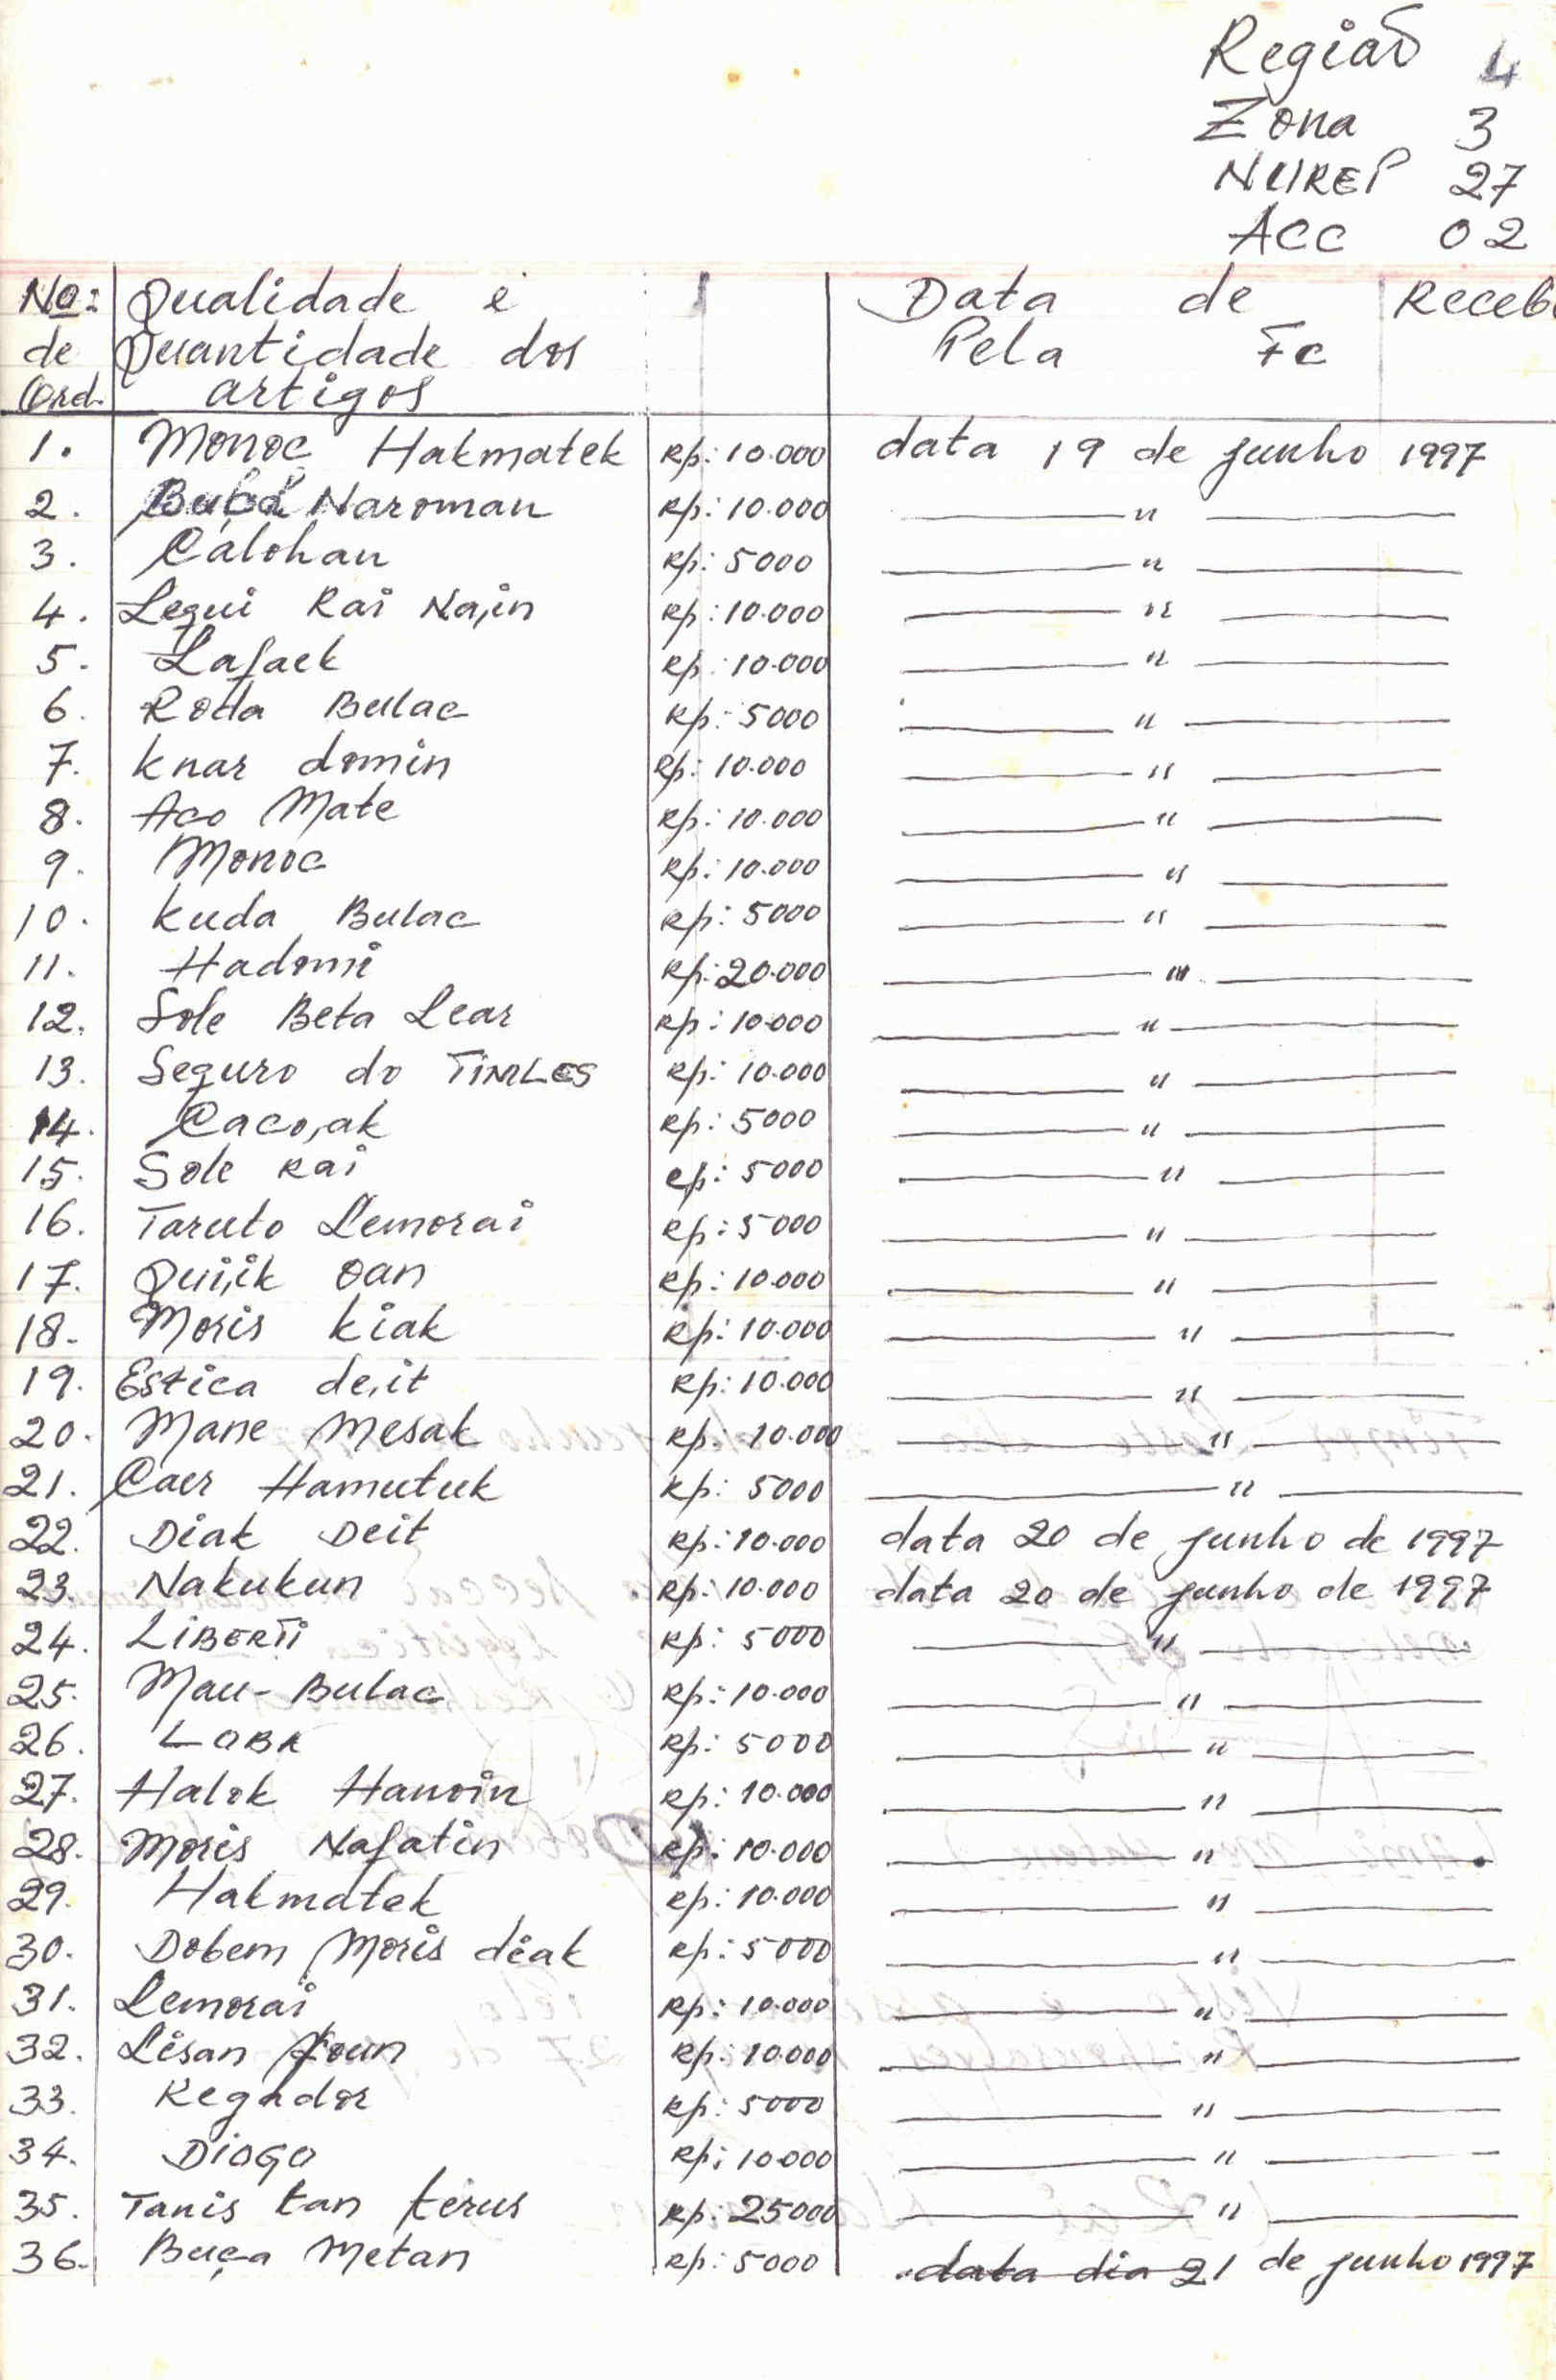 Região 4
Zona 3
NUREP 27
ACC 02
No: Qualidade e Data de Receb
de Quantidade dos Pela Fc
Ord. artigos
1. Monoc Hakmatek Rp: 10.000 data 19 de junho 1997
2. Naroman Rp: 10.000 "
3. Calohan Rp: 5000 "
4. Lequi Rai Na,in Rp: 10.000 "
5. Lafaek Rp: 10.000 "
6. Roda Bulac Rp: 5000 "
7. Knar domin Rp: 10.000 "
8. Aco Mate Rp: 10.000 "
9. Monoc Rp: 10.000 "
10. Kuda Bulac Rp: 5000 "
11. Hadomi Rp: 20.000 "
12. Sole Beta Lear Rp: 10.000 "
13. Seguro do Rp: 10.000 "
14. Caco,ak Rp: 5000 "
15. Sole Rai Rp: 5000 "
16. Taruto Lemorai Rp: 5000 "
17. Qui,ik oan Rp: 10.000 "
18. Moris kiak Rp: 10.000 "
19. Estica de,it Rp: 10.000 "
20. Mane Mesak Rp: 10.000 "
21. Caer Hamutuk Rp: 5000 "
22. Diak Deit Rp: 10.000 data 20 de junho de 1997
23. Nakukun Rp: 10.000 data 20 de junho de 1997
24. LIBERTI Rp: 5000 "
25. Mau-Bulac Rp: 10.000 "
26. LOBA Rp: 5000 "
27. Halok Hanoin Rp: 10.000 "
28. Moris Nafatin Rp: 10.000 "
29. Hakmatek Rp: 10.000 "
30. Dobem Moris diak Rp: 5000 "
31. Lemorai Rp: 10.000 "
32. Lisan Rp: 10.000 "
33. Regador Rp: 5000 "
34. DIOGO Rp: 10.000 "
35. Tanis tan terus Rp: 25000 "
36. Buça Metan Rp: 5000 data dia 21 de junho 1997